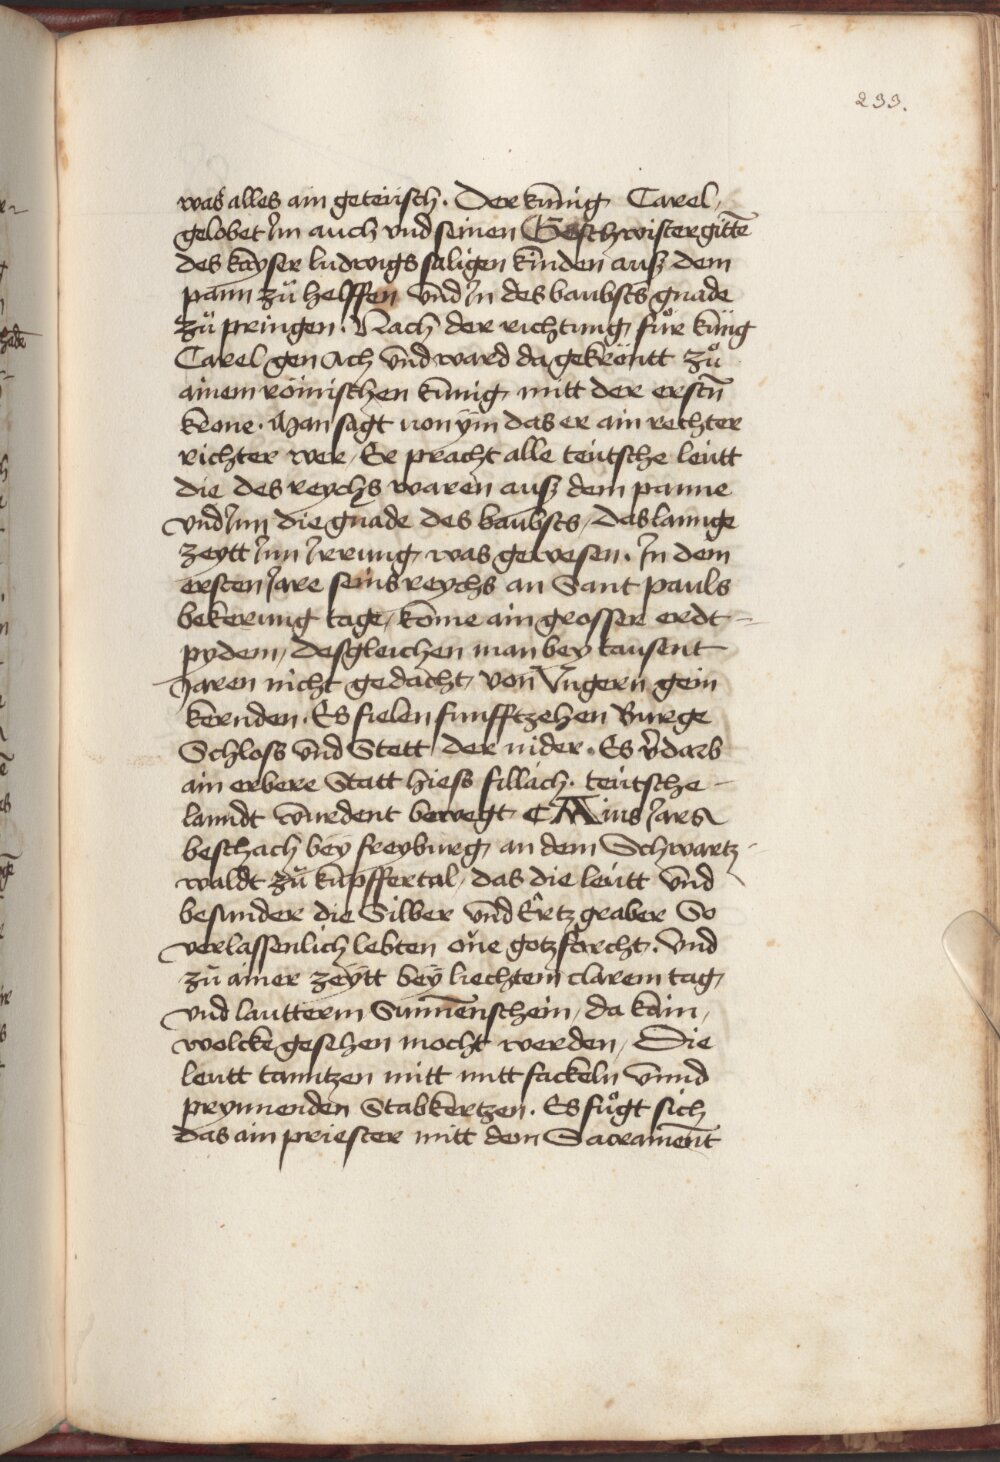 233.
was alles ain geteusch. Der künig Carel,
gelobet Im auch vnd seinen Geschwistergittē
des kayser ludwigs säligen kinden ausz dem
pann zů helffen vnd In des baubsts gnade
zů pringen. Nach der richtung fůr kunig
Carel gen Ach vnd ward da gekröntt zů
ainem römischen künnig mitt der erstn̄
krone. Man sagt von ym das er ain rechter
richter wer, Er pracht alle teutsche leutt
die des reychs waren ausz dem panne
vnd Inn die gnade des baubsts, das lannge
zeytt Inn Irrung was gewesen. In dem
ersten Jare seins reychs an Sant pauls
bekerung tage, kome ain grosser erdt-
pydem, desgleichen man bey tausent
Jaren nicht gedacht, von Vngern gein
kernden. Es fielen funfftzehen Burge
Schloss vnd Stett der nider. Es v̄darb
ain erbere Statt hiess fillach. teutsche
lanndt wurdent bewegt Ains Jars
beschach bey freyburg, an dem Schwartz-
waldt zů kupffertal, das die leutt vnd
besunder die Silber vnd Ertz graber So
verlassenlich lebten one gotzforcht. vnd
zů ainer zeytt bey liechtem clarem tag,
vnd lautterm Sunnēnschein, da kain,
wolcke gesehen mocht werden, Die
leutt tanntzen mitt mitt fackeln vnnd
prynnenden Stabkertzen. Es fůgt sich
das ain priester mitt dem Sacrament